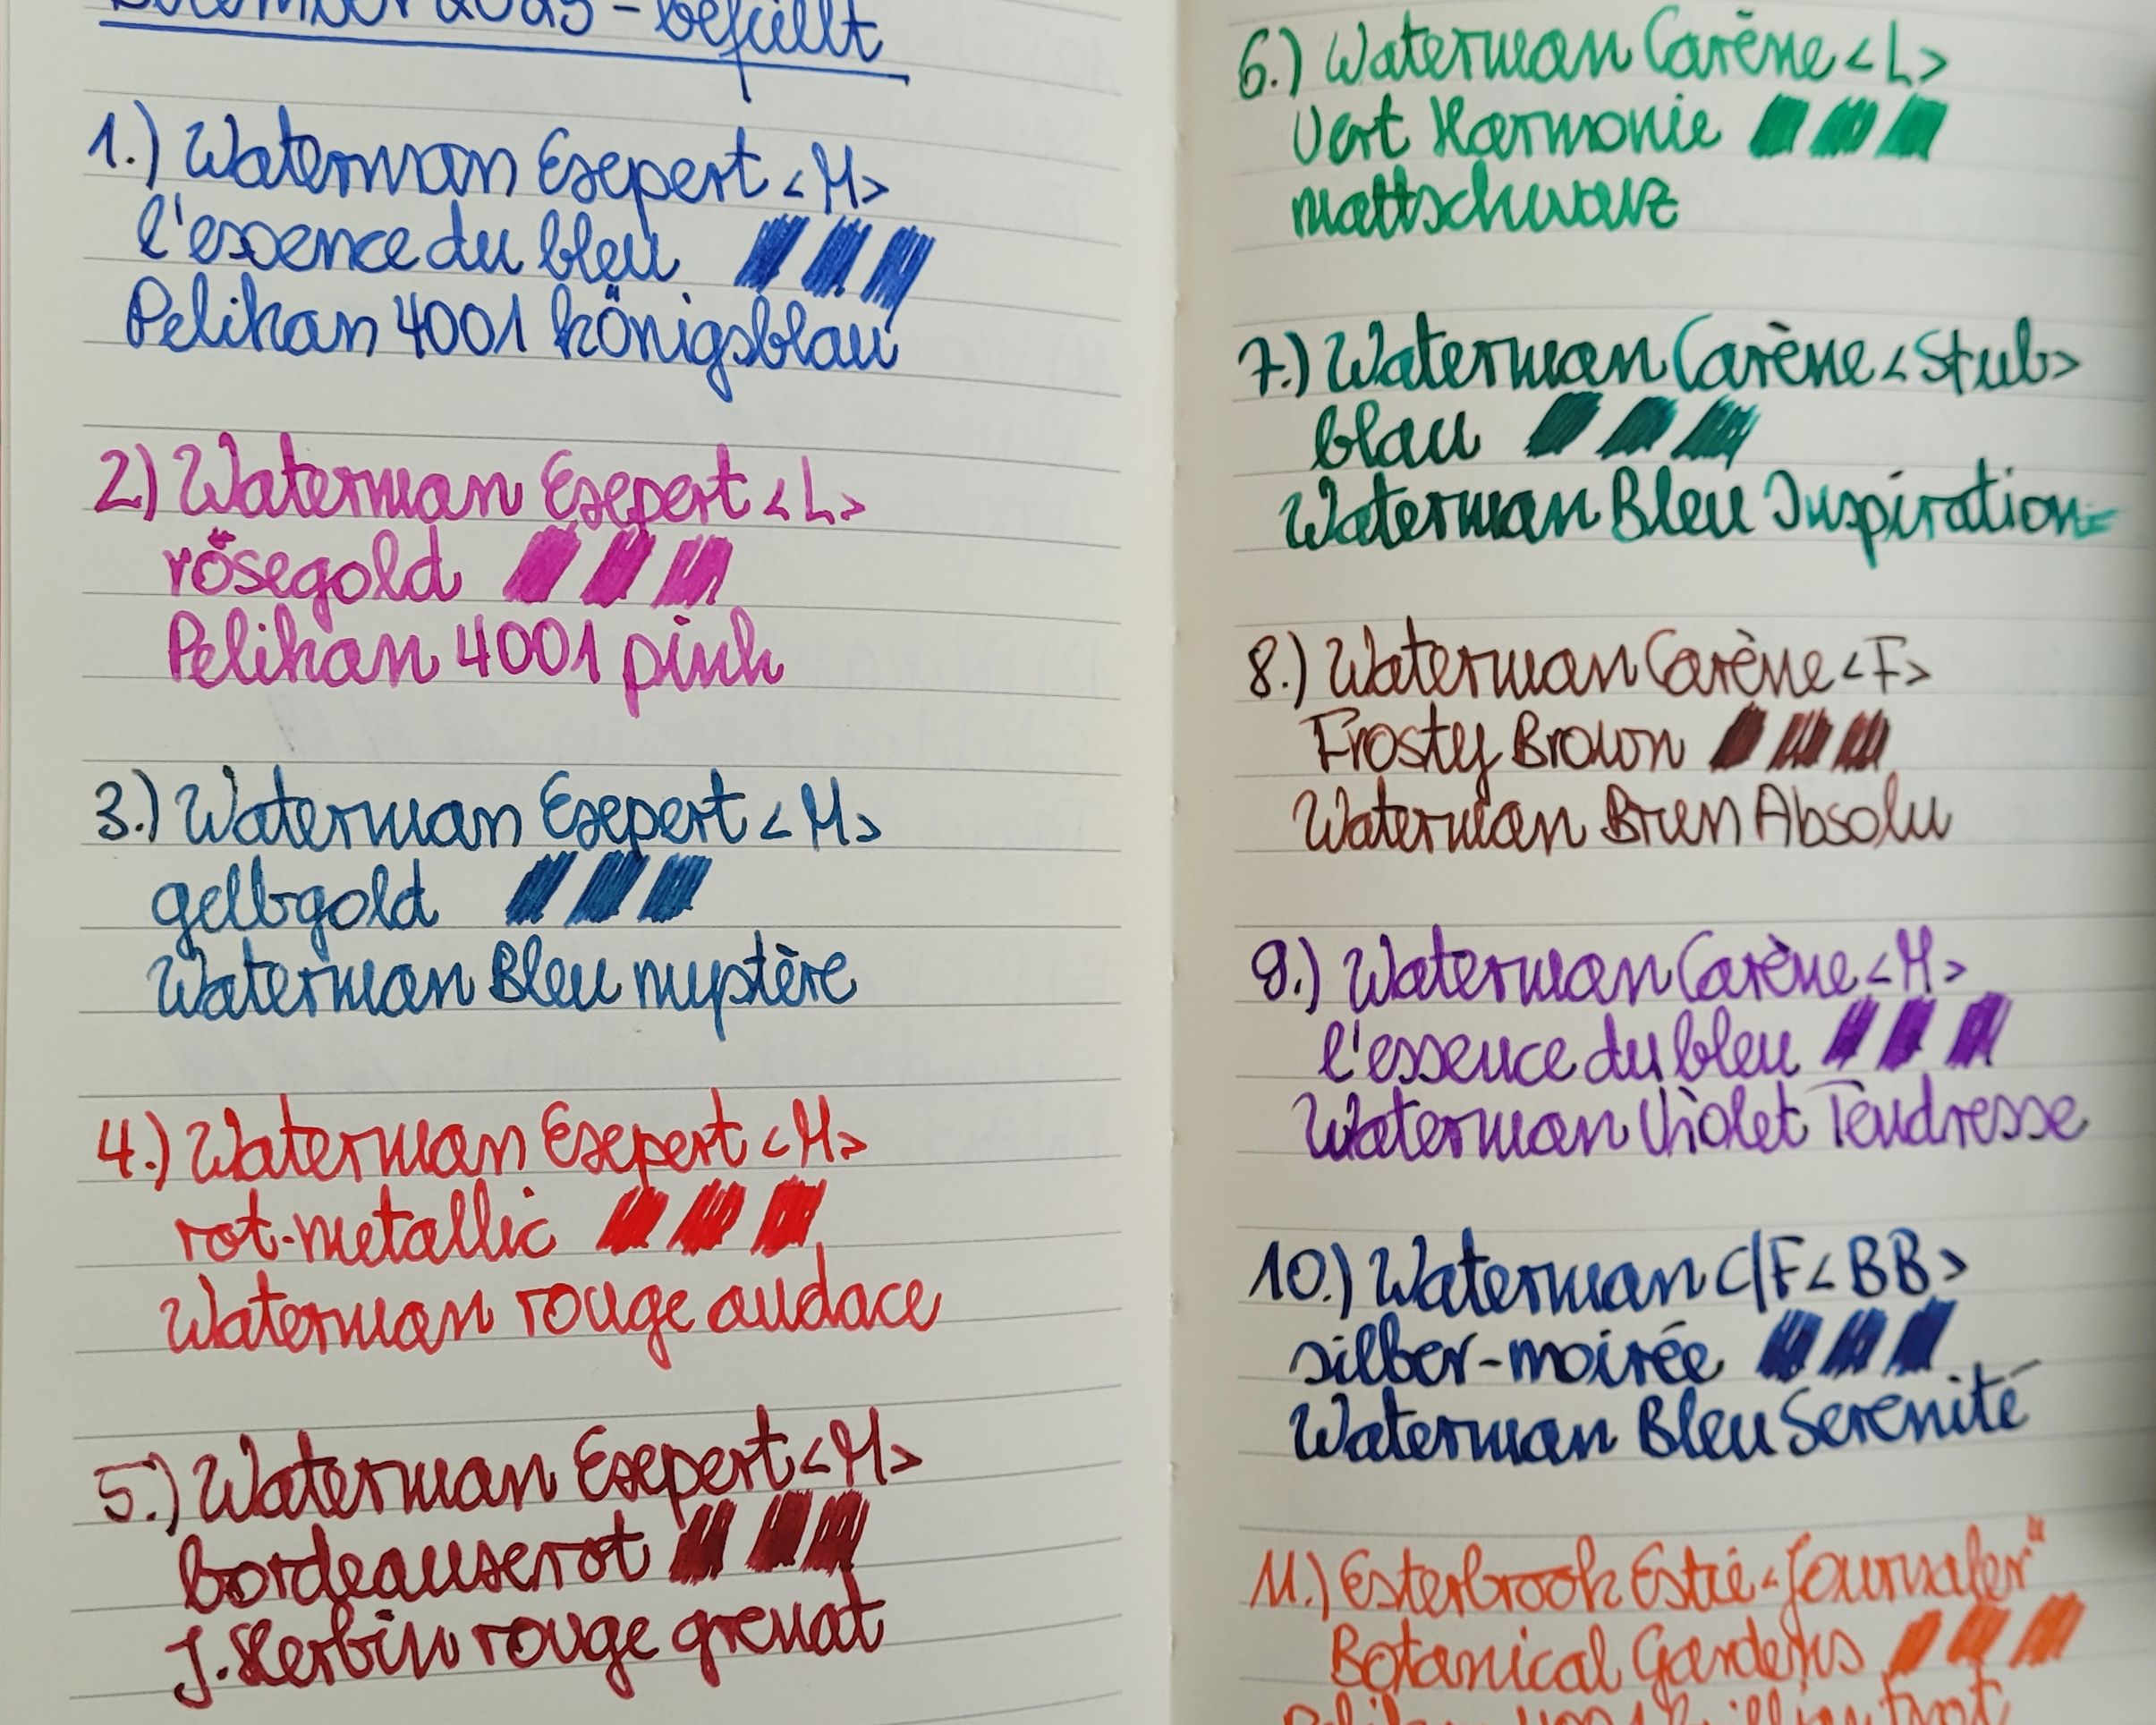 December 2025 - befüllt
1.) Waterman Expert <M>
l'essence du bleu
Pelikan 4001 königsblau
2) Waterman Expert <L>
rosegold
Pelikan 4001 pink
3.) Waterman Expert <M>
gelbgold
Waterman Bleu mystère
4.) Waterman Expert <M>
rot-metallic
Waterman rouge audace
5.) Waterman Expert <M>
bordeauxrot
J. Herbin rouge grenat
6.) Waterman Carène <L>
Vert Harmonie
mattschwarz
7.) Waterman Carène <Stub>
blau
Waterman Bleu Inspiration
8.) Waterman Carène <F>
Frosty Brown
Waterman Brun Absolu
9.) Waterman Carène <M>
l'essence du bleu
Waterman Violet Tendresse
10.) Waterman C/F <BB>
silber-moirée
Waterman Bleu Serenité
11.) Esterbrook Estie "Journaler"
Botanical Gardens
Pelikan 4001 brillantrot